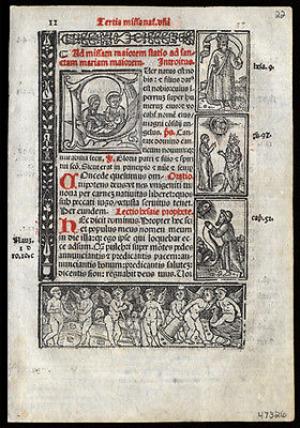 11
22
Tertia missa nat. dñi
Ad missam maiorem statio ad san
ctam mariam maiorem. Introitus.
Uer natus est no
bis: & filius dat᷒
est nobis: cuius im
perium super hu
merum eius: & vo
cabit nomē eius,
magni cōsilij an
gelus. ps. Can
tate domino canticum nouum: q̄a
mirabilia fecit. ℣. Gloria patri & filio & spiri
tui scō. Sicut erat in principio & nūc & semp
Concede quesumus om- Oratio.
nipotens deus: vt nos vnigeniti tui
noua per carnez natiuitas liberet: quos
sub peccati iugo, vetusta seruitus tenet.
Per eundem. Lectio Isaie prophete.
Hec dicit dominus. Propter hoc sci
et populus meus nomen meum in
die illa: quia ego ipse qui loquebar ec
ce adsum. Q̄ pulchri super mōtes pedes
annunciantis & predicantis pacem: an
nunciantis bonum: predicantis salutē:
dicentis sion: regnabit deus tuus. Uox
Isaie. 9.
ps. 97.
cap. 52.
47326